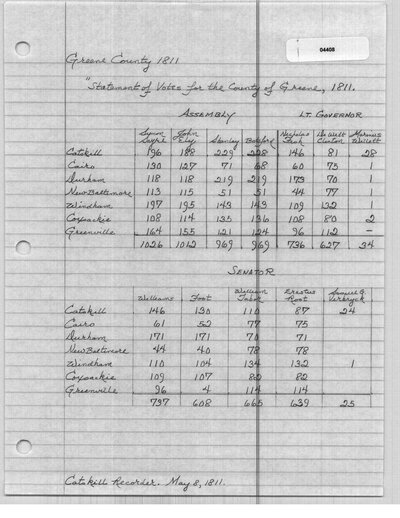 04408
Greene County 1811
"Statement of Votes for the County of Greene, 1811.
Assembly Lt. Governor
Lyman John Nicholas De Witt Marinus
Sayre Ely Stanley Botsford Fish Clinton Willett
Catskill 196 188 229 228 146 81 28
Cairo 130 127 71 68 60 75 1
Durham 118 118 219 219 173 70 1
New Baltimore 113 115 51 51 44 77
Windham 197 195 143 143 109 132 1
Coxsackie 108 114 135 136 108 80 2
Greenville 164 155 121 124 96 112 -
1026 1012 969 969 736 627 34
Senator
William Erastus Samuel G.
Williams Foot Tabor Root
Catskill 146 130 110 87 24
Cairo 61 52 77 75
Durham 171 171 70 71
New Baltimore 44 40 78 78
Windham 110 104 134 132 1
Coxsackie 109 107 82 82
Greenville 96 4 114 114
737 608 665 639 25
Catskill Recorder. May 8, 1811.